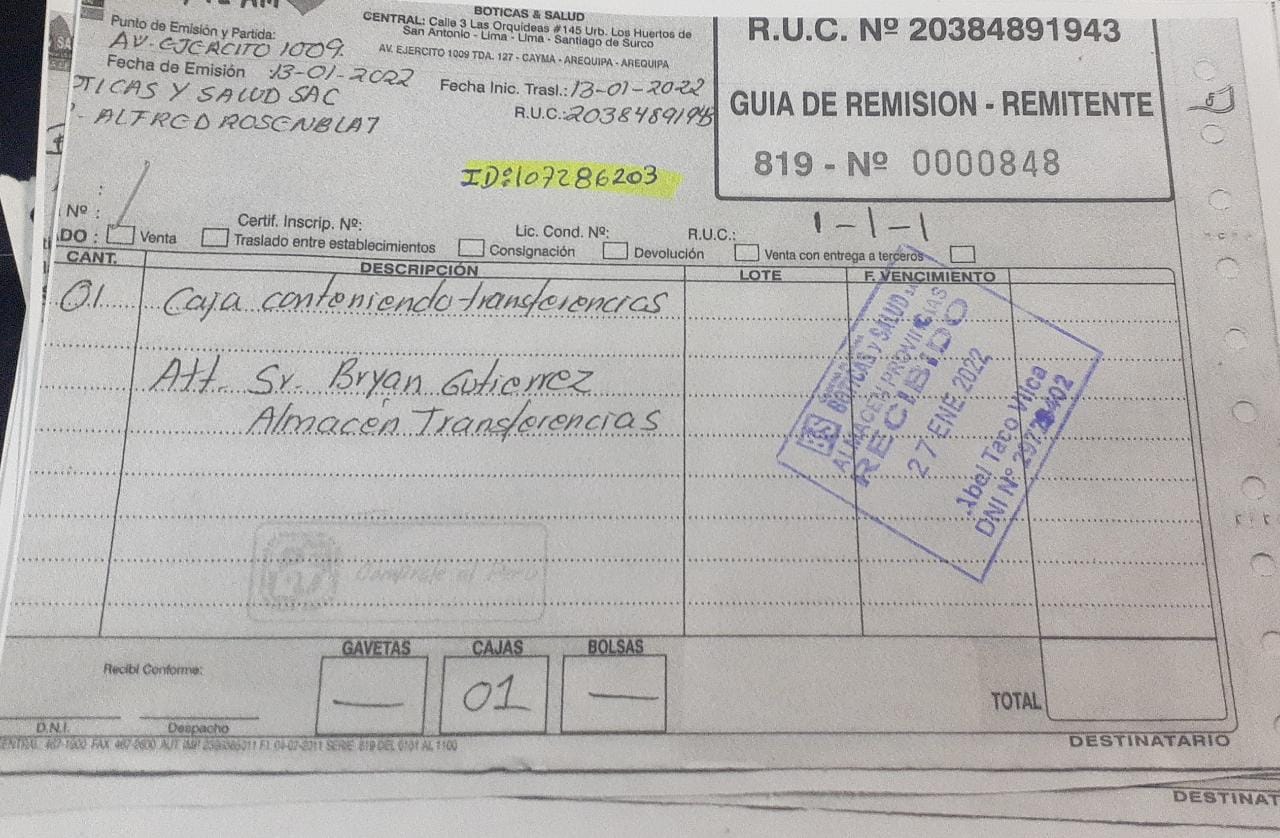 BOTICAS & SALUD
CENTRAL: Calle 3 Las Orquideas #145 Urb. Los Huertos de
San Antonio - Lima - Lima - Santiago de Surco
AV. EJERCITO 1009 TDA. 127 - CAYMA - AREQUIPA - AREQUIPA
R.U.C. Nº 20384891943
GUIA DE REMISION - REMITENTE
819 - Nº 0000848
Punto de Emisión y Partida:
AV. EJERCITO 1009.
Fecha de Emisión 13-01-2022
Fecha Inic. Trasl.: 13-01-2022
TICAS Y SALUD SAC
R.U.C.:
ALFRED ROSENBLAT
ID:107286203
Nº :
Certif. Inscrip. Nº:
Lic. Cond. Nº:
R.U.C.:
1-1-1
DO :
Venta
Traslado entre establecimientos
Consignación
Devolución
Venta con entrega a terceros
CANT. DESCRIPCIÓN LOTE F. VENCIMIENTO
01 Caja conteniendo transferencias
Att. Sr. Bryan Gutierrez
Almacén Transferencias
BS BOTICAS Y SALUD
ALMACEN PROVINCIAS
RECIBIDO
27 ENE 2022
Abel Taco Vilca
DNI Nº
GAVETAS CAJAS BOLSAS
Recibí Conforme:
— 01 —
TOTAL
D.N.I. Despacho
SERIE 819 DEL 0101 AL 1100
DESTINATARIO
DESTINAT